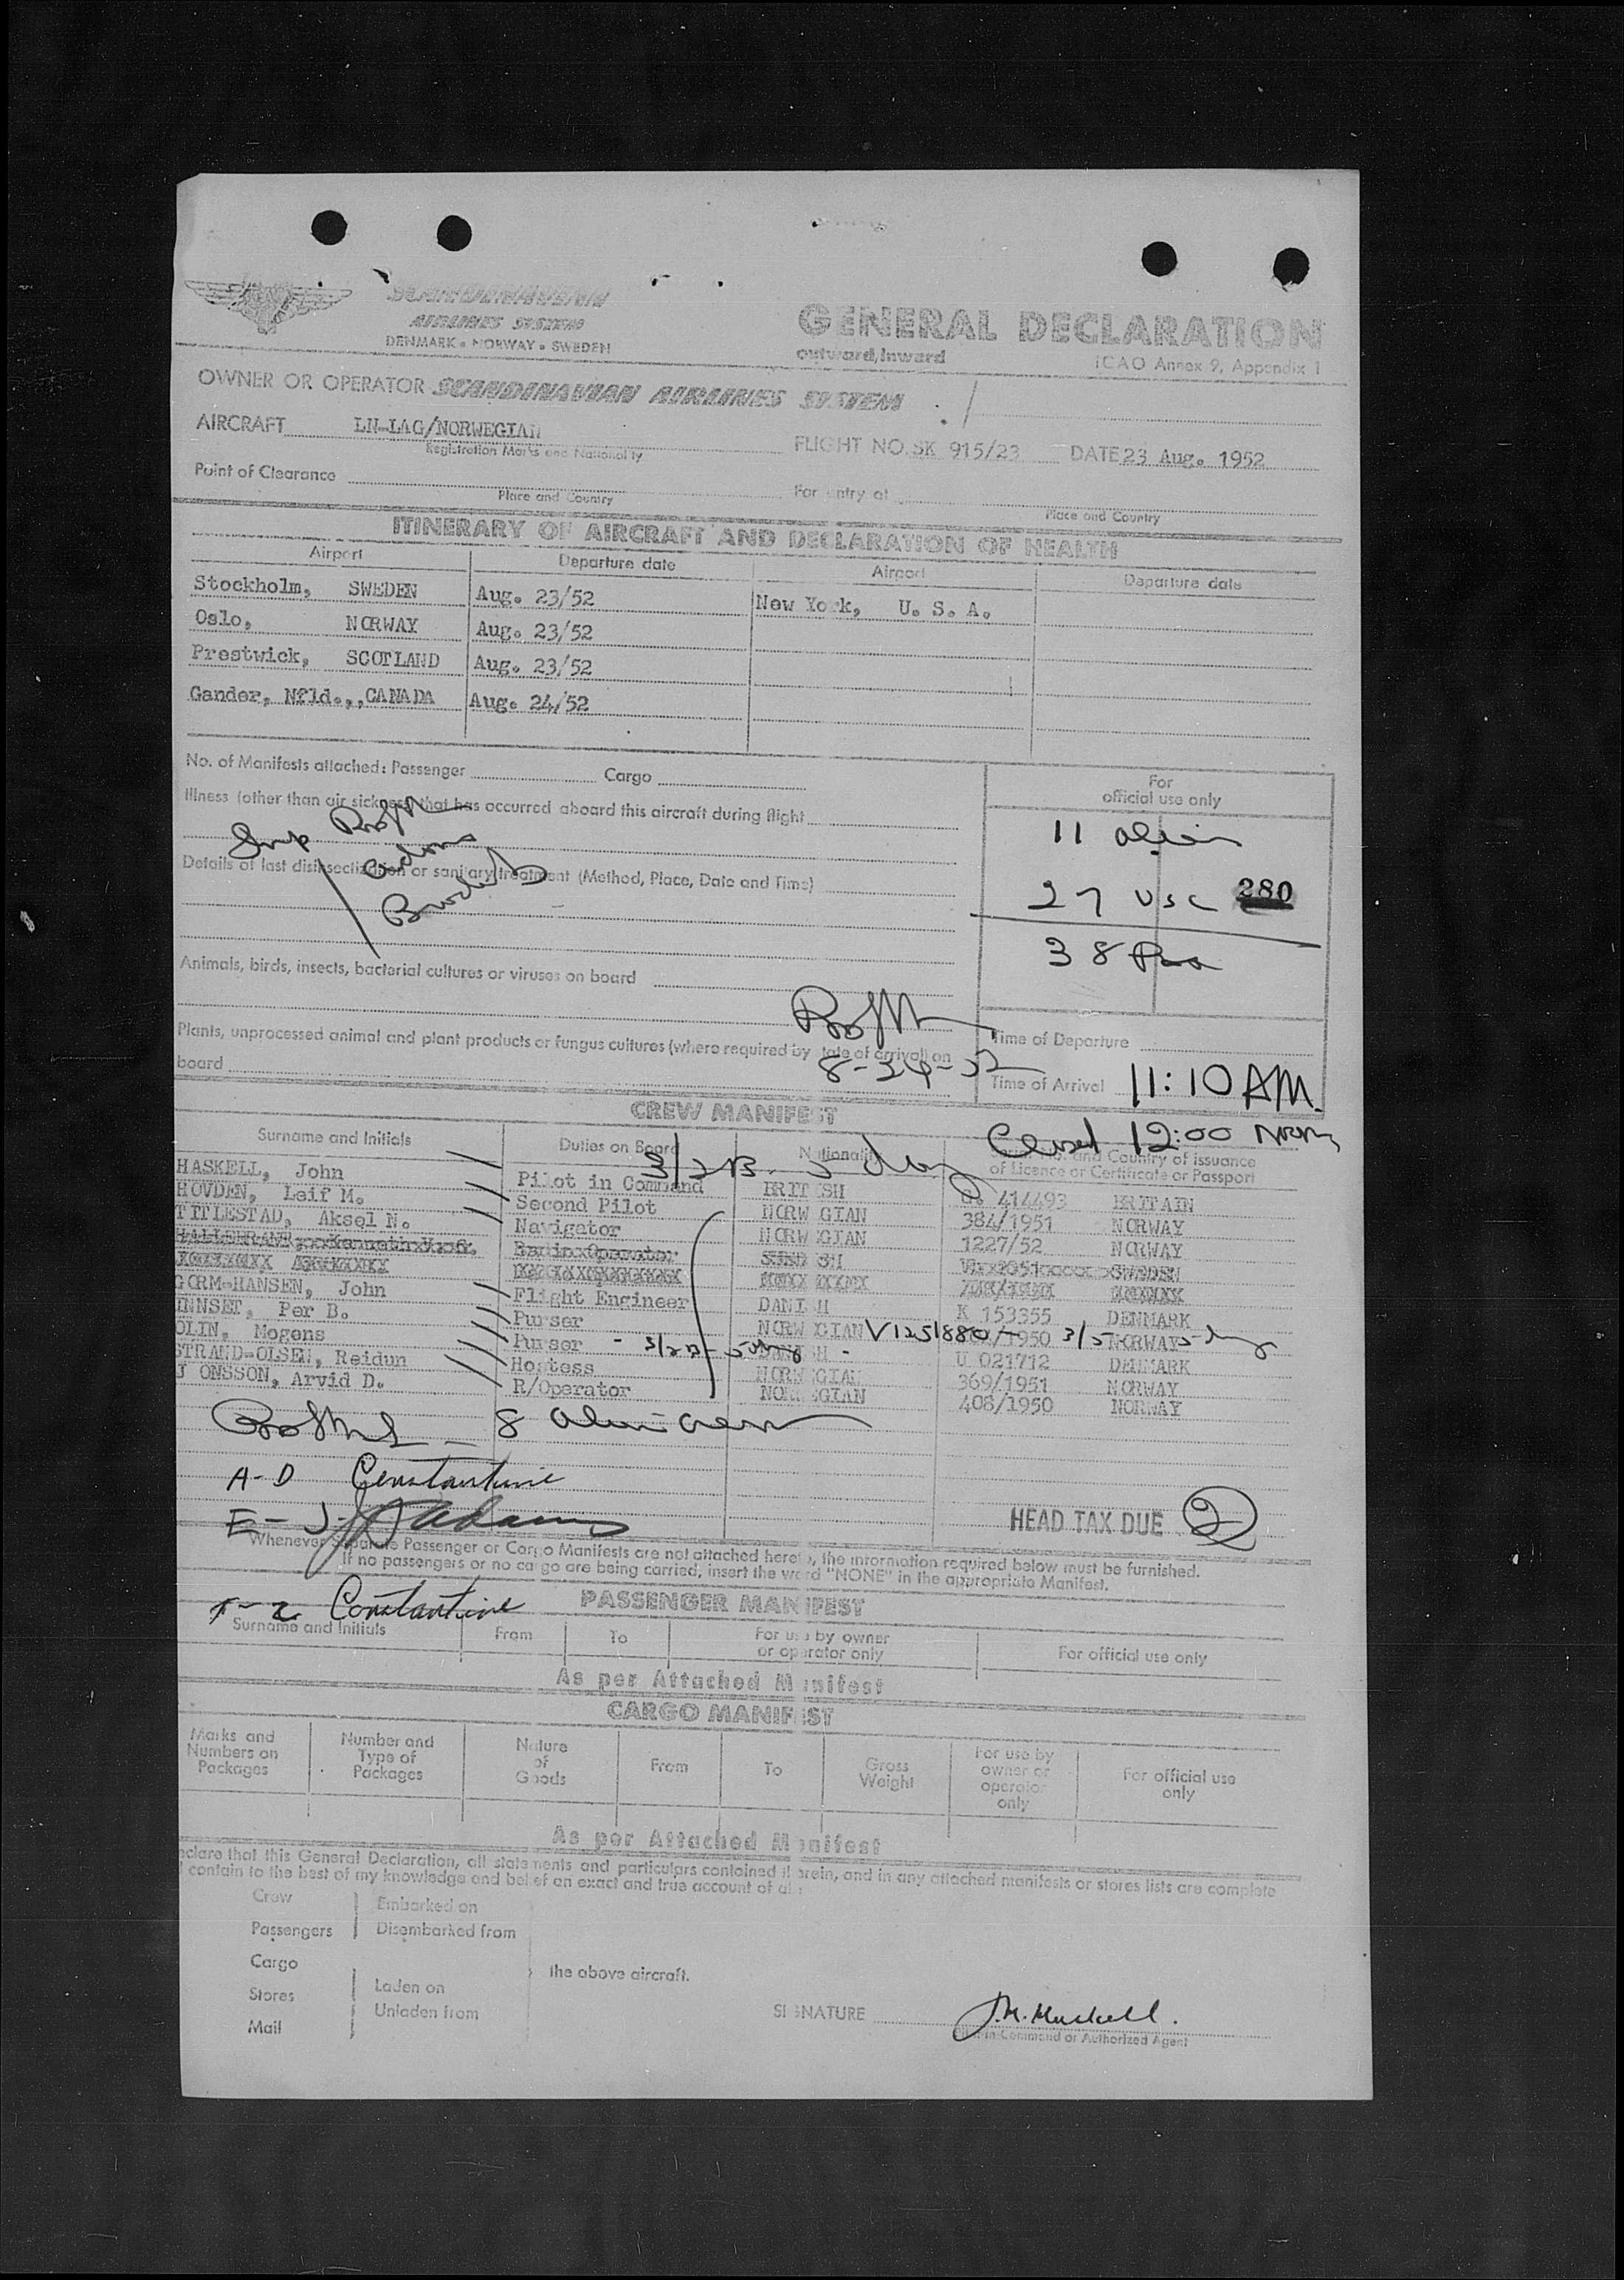 SCANDINAVIAN
AIRLINES SYSTEM
DENMARK • NORWAY • SWEDEN
GENERAL DECLARATION
outward, inward
ICAO Annex 9, Appendix 1
OWNER OR OPERATOR SCANDINAVIAN AIRLINES SYSTEM
AIRCRAFT LN-LAG/NORWEGIAN
Registration Marks and Nationality
FLIGHT NO. SK 915/23 DATE 23 Aug. 1952
Point of Clearance
Place and Country
For entry at
Place and Country
ITINERARY OF AIRCRAFT AND DECLARATION OF HEALTH
Airport Departure date Airport Departure date
Stockholm, SWEDEN Aug. 23/52 New York, U. S. A.
Oslo, NORWAY Aug. 23/52
Prestwick, SCOTLAND Aug. 23/52
Gander, Nfld.,,CANADA Aug. 24/52
No. of Manifests attached: Passenger Cargo
For
official use only
Illness (other than air sickness) that has occurred aboard this aircraft during flight
11 alien
Details of last disinsectization or sanitary treatment (Method, Place, Date and Time)
27 USC 280
38
Animals, birds, insects, bacterial cultures or viruses on board
Plants, unprocessed animal and plant products or fungus cultures (where required by state of arrival) on
board
8-24-52
Time of Departure
Time of Arrival 11:10 AM.
12:00 Noon
CREW MANIFEST
Surname and Initials Duties on Board Nationality and Country of issuance
of Licence or Certificate or Passport
HASKELL, John Pilot in Command BRITISH 414493 BRITAIN
HOVDEN, Leif M. Second Pilot NORWEGIAN 384/1951 NORWAY
TITLESTAD, Aksel N. Navigator NORWEGIAN 1227/52 NORWAY
Radio Operator SWEDEN
GORM-HANSEN, John Flight Engineer DANISH K 153355 DENMARK
INNSET, Per B. Purser NORWEGIAN V1251880 /1950 NORWAY
OLIN, Mogens Purser DANISH U 021712 DENMARK
STRAND-OLSEN, Reidun Hostess NORWEGIAN 369/1951 NORWAY
JONSSON, Arvid D. R/Operator NORWEGIAN 408/1950 NORWAY
8 alien crew
A-D Constantine
E-J Adams
HEAD TAX DUE 2
Whenever Separate Passenger or Cargo Manifests are not attached hereto, the information required below must be furnished.
If no passengers or no cargo are being carried, insert the word "NONE" in the appropriate Manifest.
Constantine
PASSENGER MANIFEST
Surname and Initials From To For use by owner
or operator only For official use only
As per Attached Manifest
CARGO MANIFEST
Marks and
Numbers on
Packages
Number and
Type of
Packages
Nature
of
Goods
From
To
Gross
Weight
For use by
owner or
operator
only
For official use
only
As per Attached Manifest
declare that this General Declaration, all statements and particulars contained therein, and in any attached manifests or stores lists are complete
contain to the best of my knowledge and belief an exact and true account of all
Crew Embarked on
Passengers Disembarked from
Cargo
the above aircraft.
Stores Laden on
Mail Unladen from
SIGNATURE J.M. Haskell.
in-Command or Authorized Agent